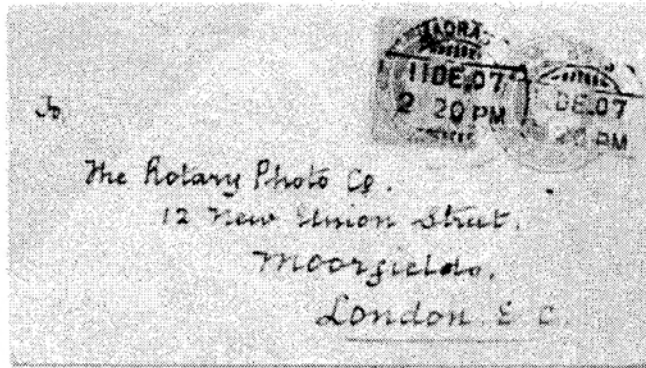 MADRAS
11 DE.07
2 20 PM
DE.07
20 PM
To
The Rotary Photo Co.
12 New Union Street,
Moorfields,
London. E. C.